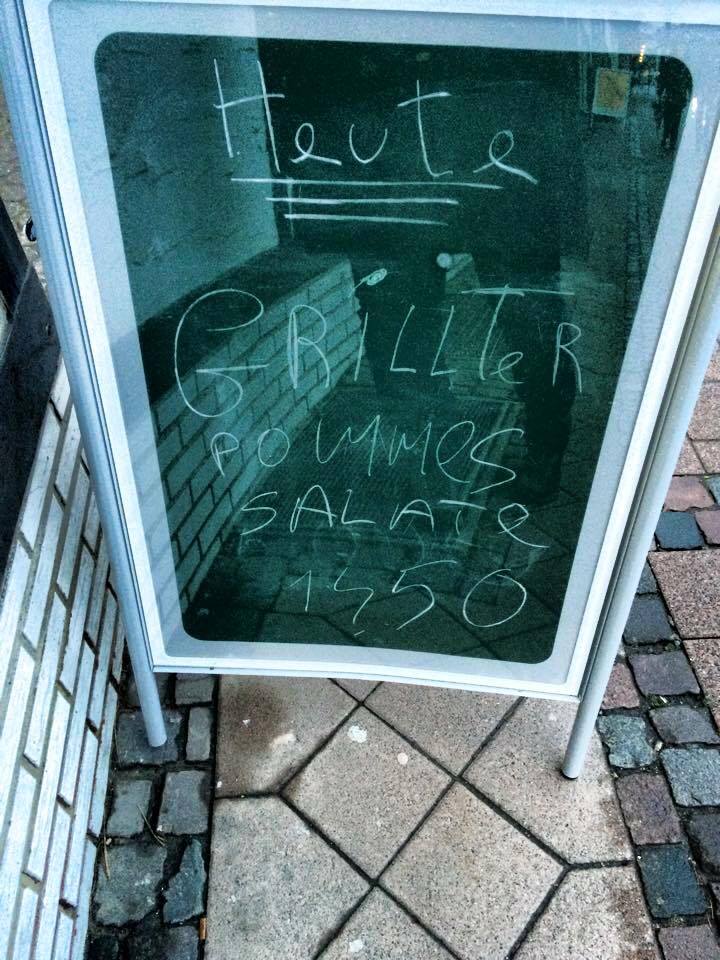 Heute
GRILLTeR
POMMeS
SALATe
1450